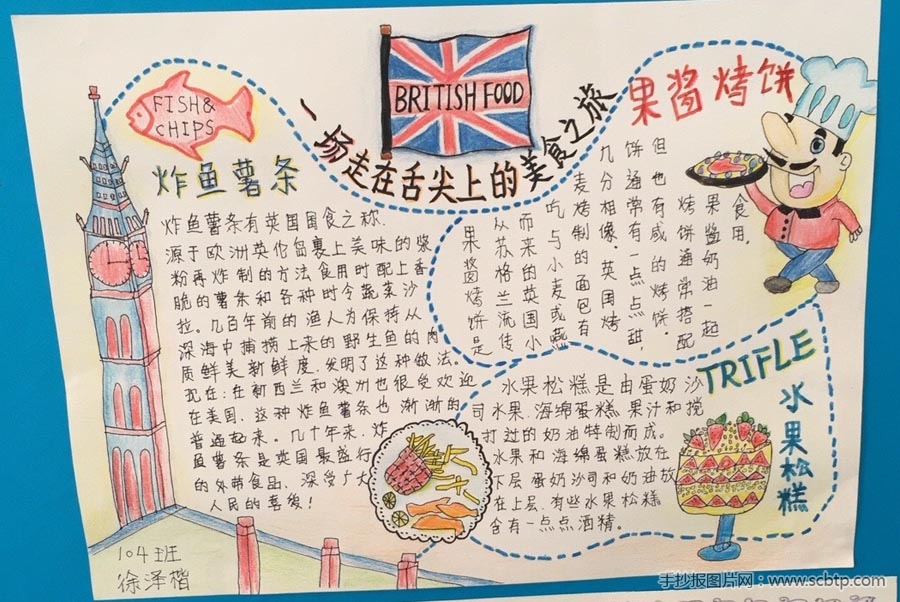 BRITISH FOOD
一场走在舌尖上的美食之旅
FISH&
CHIPS
炸鱼薯条
炸鱼薯条有英国国食之称.
源于欧洲英伦岛裹上美味的浆
粉再炸制的方法.食用时配上香
脆的薯条和各种时令蔬菜沙
拉。几百年前的渔人为保持从
深海中捕捞上来的野生鱼的肉
质鲜美新鲜度,发明了这种做法。
现在:在新西兰和澳洲也很受欢迎
在美国,这种炸鱼薯条也渐渐的
普遍起来。几十年来,炸
鱼薯条是英国最盛行
的外带食品,深受广大
人民的喜爱!
果酱烤饼
果酱烤饼是
从苏格兰流传
而来的英国小
吃与小麦或燕
麦烤制的面包有
几分相像。英国烤
饼通常有一点点甜,
但也有咸的烤饼.
烤饼通常搭配
果酱奶油一起
食用.
TRIFLE
水果松糕
水果松糕是由蛋奶沙
司水果.海绵蛋糕.果汁和搅
打过的奶油特制而成。
水果和海绵蛋糕放在
下层,蛋奶沙司和奶油放
在上层.有些水果松糕
含有一点点酒精。
104班
徐泽楷
手抄报图片网:www.scbtp.com